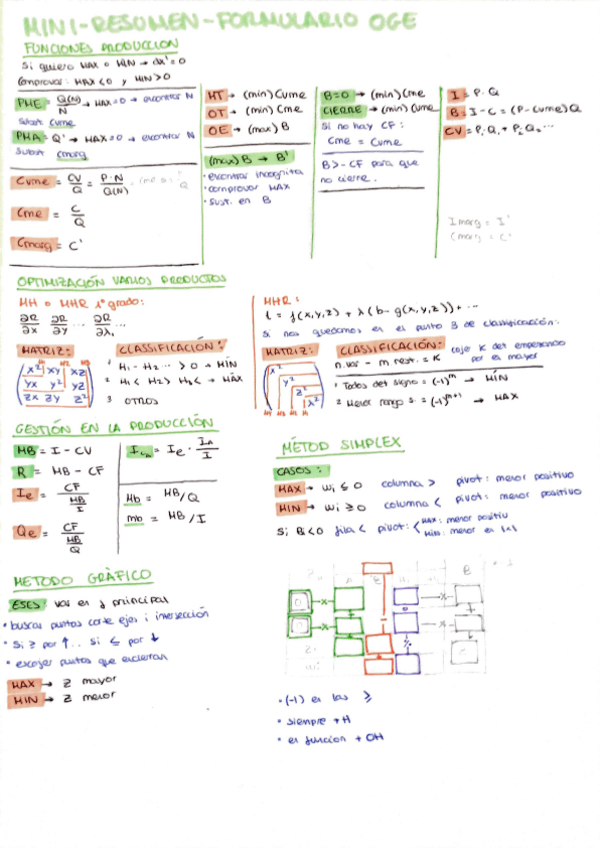 MINI-RESUMEN-FORMULARIO OGE
FUNCIONES PRODUCCION
Si quiero MAX o MIN → dx' = 0
Comprovar: MAX < 0 y MIN > 0
PME = Q(N)/N → MAX = 0 → encontrar N
Subst. Cvme
PMA = Q' → MAX = 0 → encontrar N
Subst. Cmarg
Cvme = CV/Q = P·N/Q(N)
Cme = C/Q
Cmarg = C'
MT → (min) Cvme
OT → (min) Cme
OE → (max) B
(max) B → B'
· encontrar incognita
· comprovar MAX
· sust. en B
B=0 → (min) Cme
CIERRE → (min) Cvme
Si no hay CF:
Cme = Cvme
B > -CF para que
no cierre.
I = P·Q
B = I - C = (P - Cvme) Q
CV = P₁Q₁ + P₂Q₂...
Imarg = I'
Cmarg = C'
OPTIMIZACIÓN VARIOS PRODUCTOS
MH o MHR 1º grado:
∂R/∂x ∂R/∂y ... ∂R/∂λ, ...
MATRIZ:
H1 H2 H3
x² xy xz
yx y² yz
zx zy z²
CLASSIFICACIÓN:
1 H1 - H2 ... > 0 → MÍN
2 H1 < H2 > H3 < → MÁX
3 OTROS
MHR:
L = f(x,y,z) + λ(b - g(x,y,z)) + ...
Si nos quedamos en el punto 3 de classificación:
MATRIZ:
x²
y²
z²
λ²
CLASSIFICACIÓN: coje K del empezando
n.var - m rest. = K por el mayor
1 Todos det signo = (-1)^m → MÍN
2 Menor rango s. = (-1)^(m+1) → MAX
GESTIÓN EN LA PRODUCCIÓN
MB = I - CV
R = MB - CF
Ie = CF / (MB/I)
Qe = CF / (MB/Q)
Mb = MB/Q
mb = MB/I
MÉTOD SIMPLEX
CASOS:
MAX → wi ≤ 0 columna > pivot: menor positivo
MIN → wi ≥ 0 columna < pivot: menor positivo
Si B < 0 fila < pivot: { MAX: menor positiu
MIN: menor en |x|
METODO GRÀFICO
EJES → var en y principal
• buscar puntos corte ejes i intersección
• Si ≥ por ↑ .. Si ≤ por ↓
• escojer puntos que encierran
MAX → Z mayor
MIN → Z menor
• (-1) en las ≥
• siempre + H
• en funcion + OH